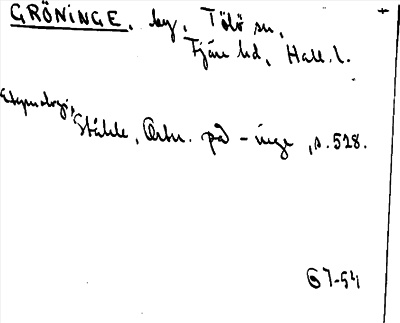 GRÖNINGE, by, Tölö sn,
Fjäre hd, Hall. l.
Etymologi,
Ståhle, Ortn. på -inge, s. 528.
67-54